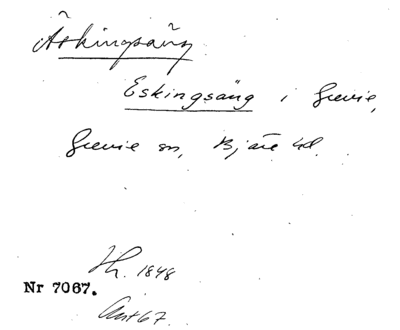 Äskingsäng
Eskingsäng i Grevie,
Grevie sn, Bjäre hd.
Hr. 1848
Nr 7067.
Ant 67.